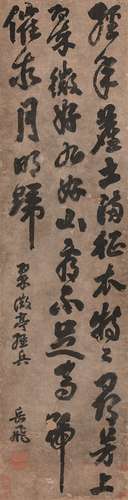 經年塵土滿征衣特〻尋芳上
翠微好水好山看不足馬蹄
催趁月明歸
翠微亭
岳飛